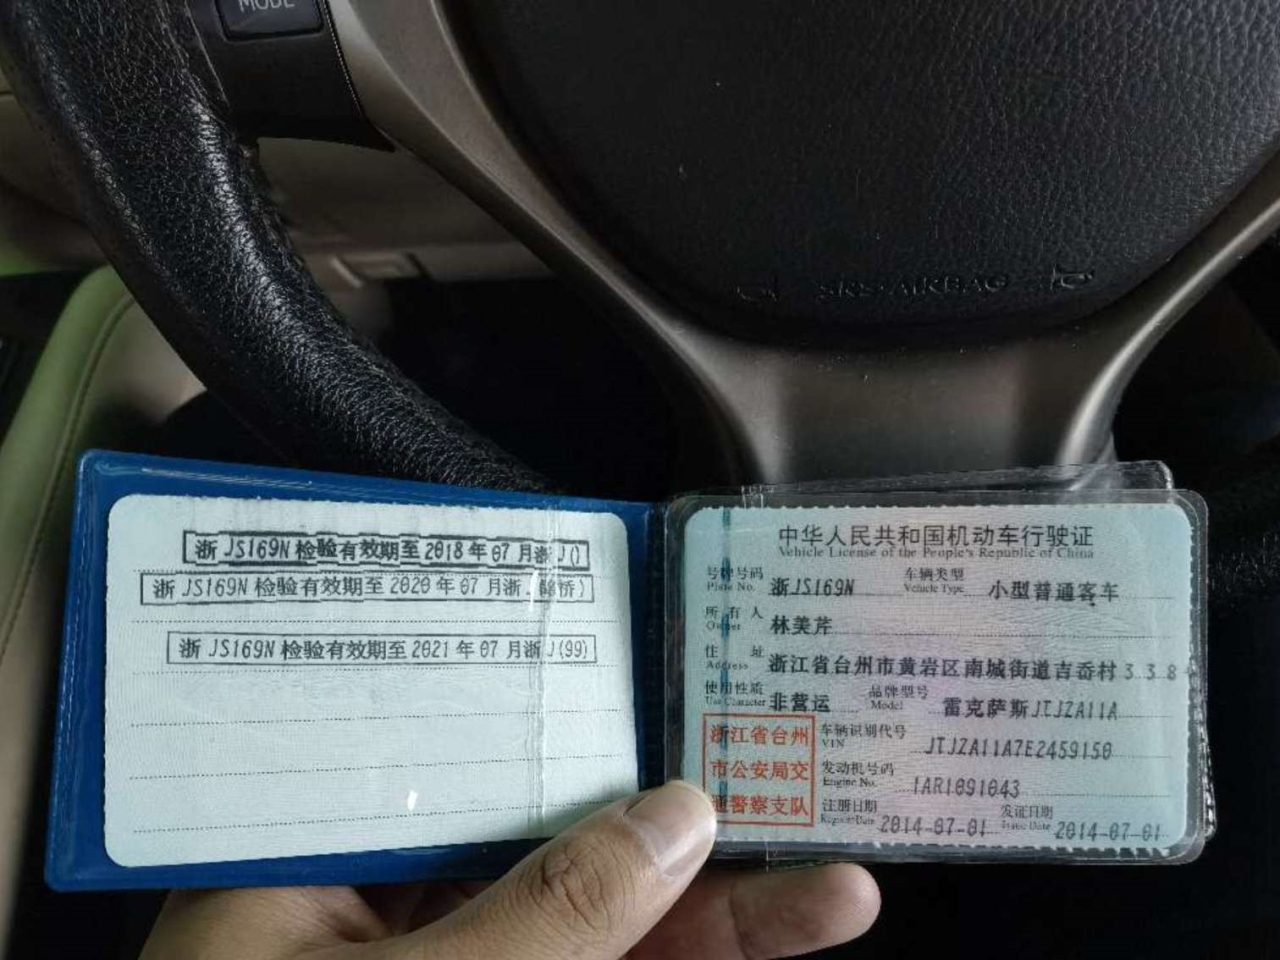 MODE
SRS AIRBAG
浙JS169N检验有效期至2018年07月浙J()
浙JS169N检验有效期至2020年07月浙
浙JS169N检验有效期至2021年07月浙J(99)
中华人民共和国机动车行驶证
Vehicle License of the People's Republic of China
号牌号码 Plate No. 浙JS169N 车辆类型 Vehicle Type 小型普通客车
所有人 Owner 林美芹
住址 Address 浙江省台州市黄岩区南城街道吉岙村338
使用性质 Use Character 非营运 品牌型号 Model 雷克萨斯JTJZA11A
浙江省台州
市公安局交
通警察支队
车辆识别代号 VIN JTJZA11A7E2459150
发动机号码 Engine No. 1AR1091043
注册日期 Register Date 2014-07-01 发证日期 Issue Date 2014-07-01